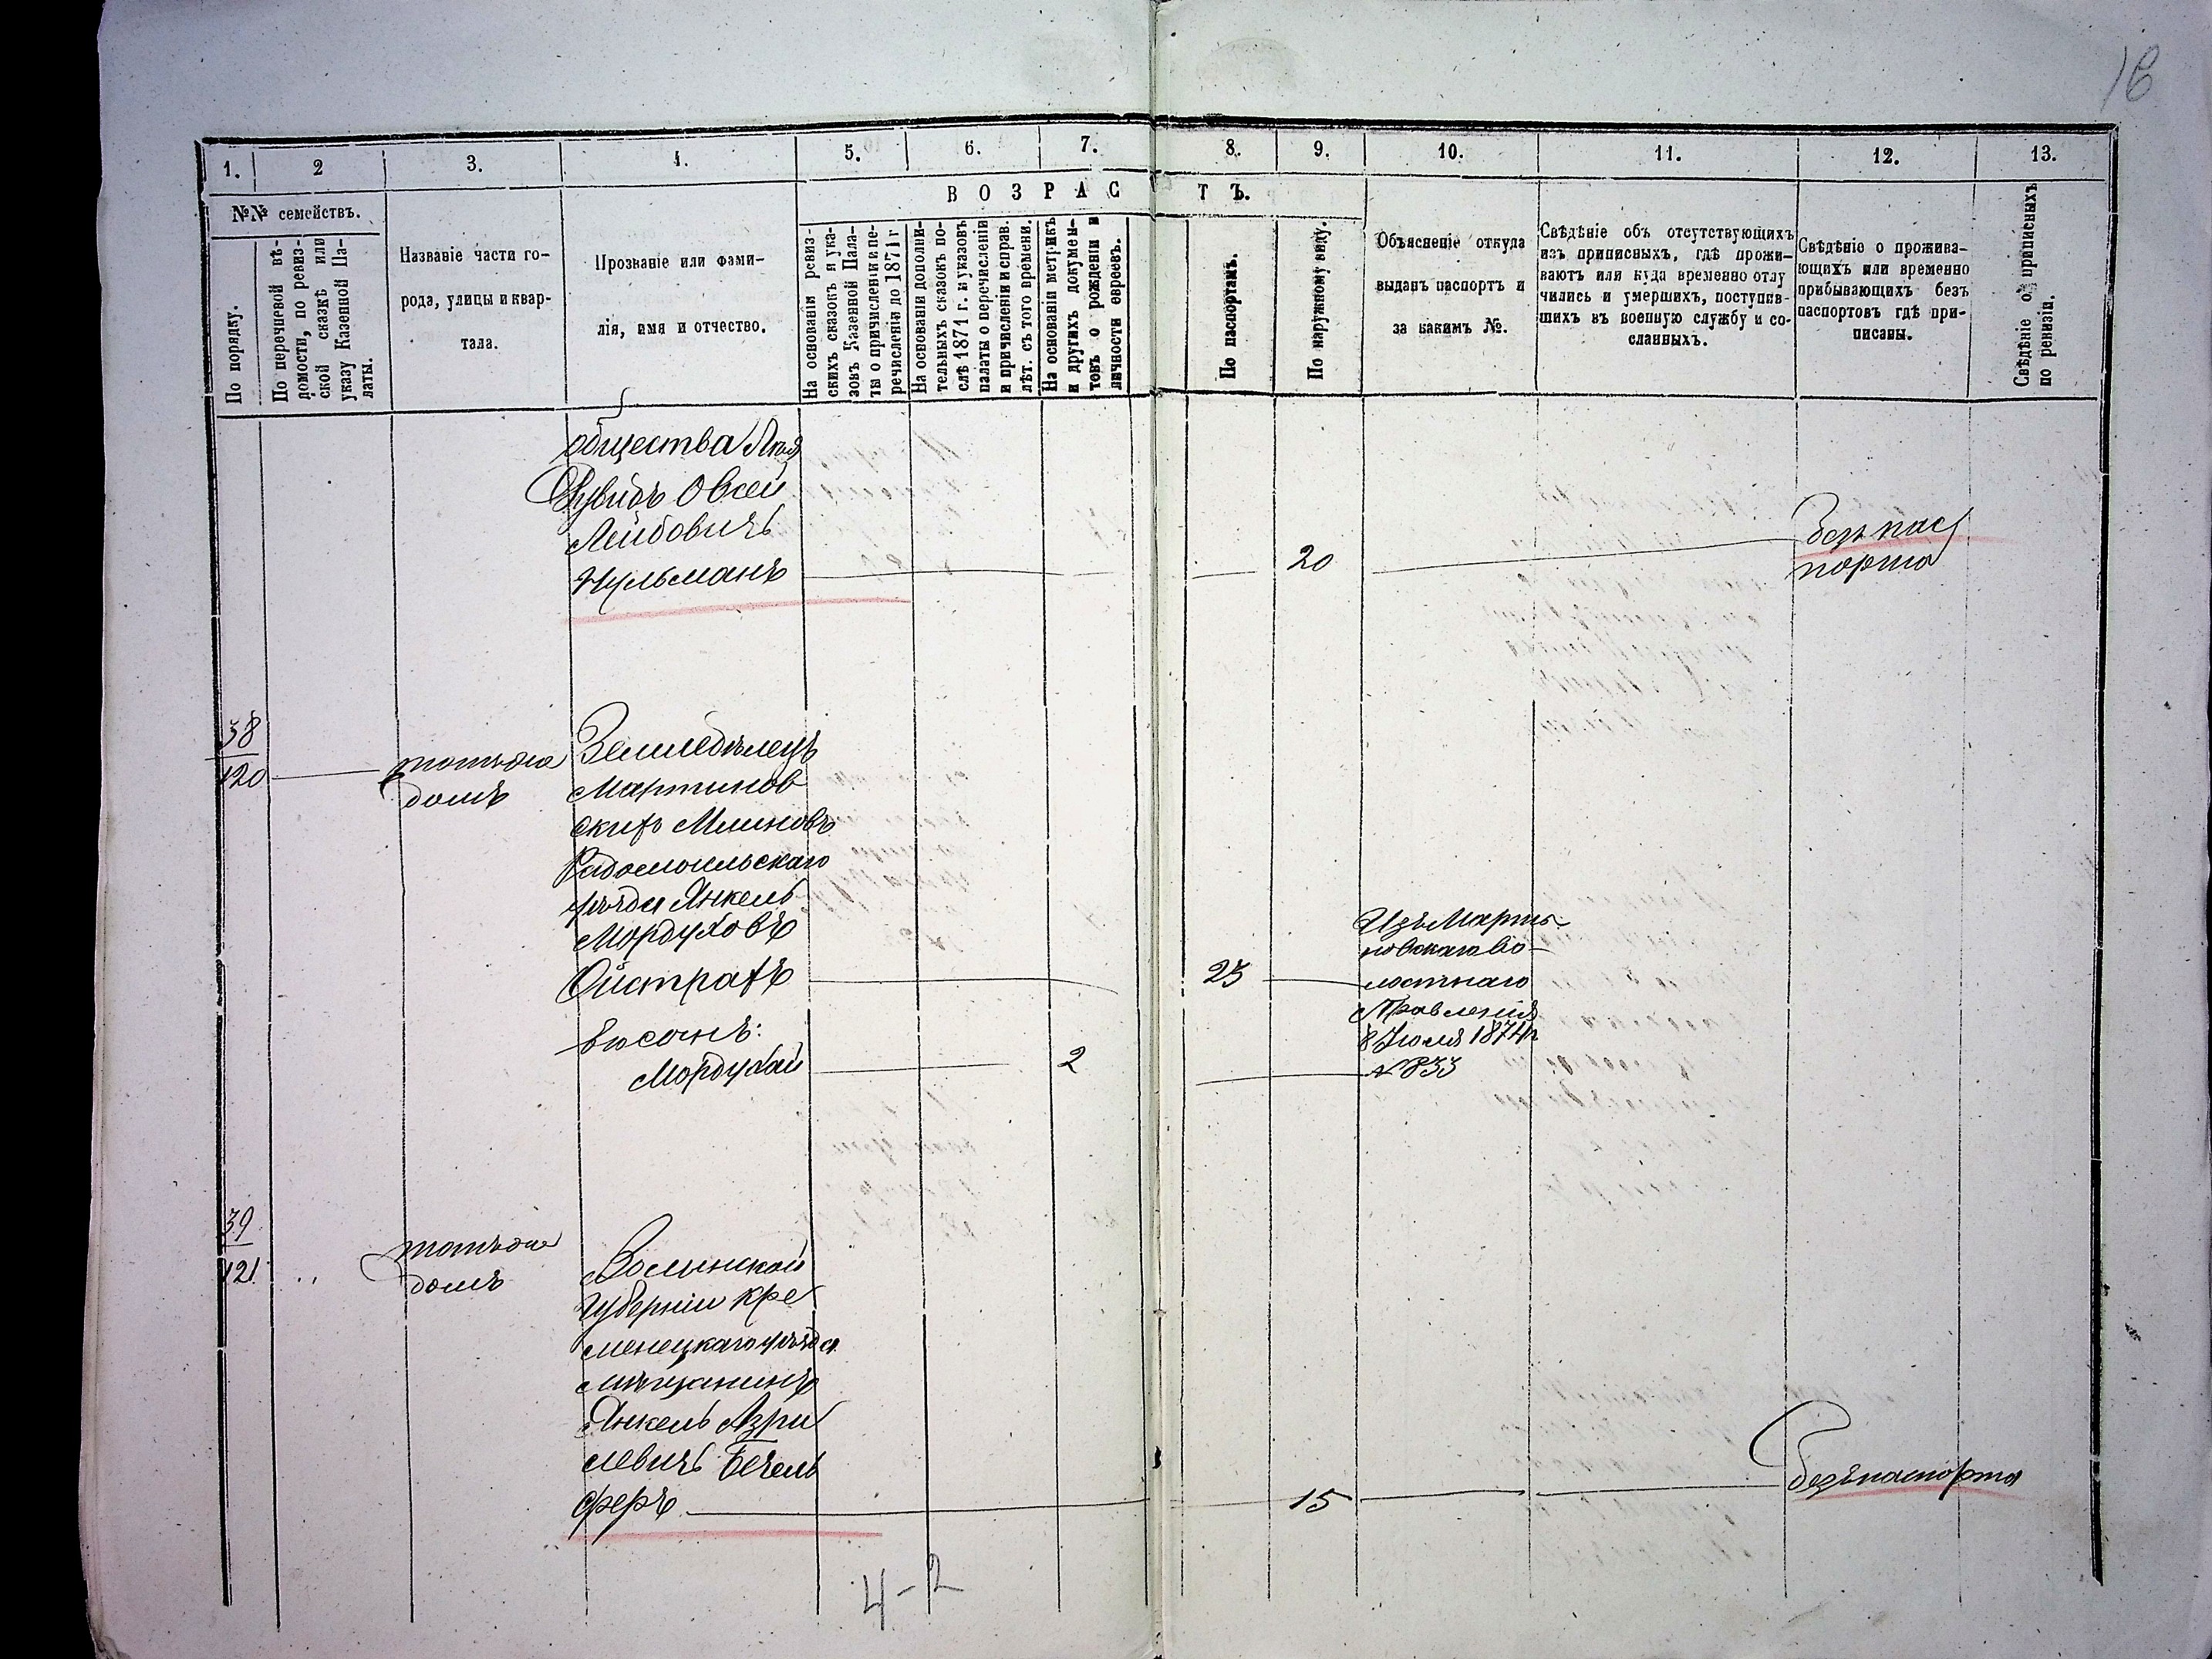 16
1.
2
3.
4.
5.
6.
7.
8.
9.
10.
11.
12.
13.
№№ семействъ.
ВОЗРАСТЪ.
По порядку.
По перечневой вѣ-
домости, по ревиз-
ской сказкѣ или
указу Казенной Па-
латы.
Названіе части го-
рода, улицы и квар-
тала.
Прозваніе или фами-
лія, имя и отчество.
На основаніи ревиз-
скихъ сказокъ и ука-
зовъ Казенной Пала-
ты о причисленіи и пе-
речисленіи до 1871 г
На основаніи дополни-
тельныхъ сказокъ по-
слѣ 1871 г. и указовъ
палаты о перечисленіи
и причисленіи и справ.
лѣт. съ того времени.
На основаніи метрикъ
и другихъ докумен-
товъ о рожденіи и
личности евреевъ.
По паспортамъ.
По наружному виду.
Объясненіе откуда
выданъ паспортъ и
за какимъ №.
Свѣдѣніе объ отсутствующихъ
изъ приписныхъ, гдѣ прожи-
ваютъ или куда временно отлу
чились и умершихъ, поступив-
шихъ въ военную службу и со-
сланныхъ.
Свѣдѣніе о прожива-
ющихъ или временно
прибывающихъ безъ
паспортовъ гдѣ при-
писаны.
Свѣдѣніе о приписныхъ
по ревизіи.
общества
Дувидъ Овсей
Лейбовичъ
Кульманъ
20
безъ пас
порта
38
120
тотъ же
домъ
Земледѣлецъ
Мартинов
скихъ Млиновъ
Радомыльскаго
уѣзда Янкель
Мордуховъ
Ойстрахъ
25
Изъ Марты-
новскаго Во-
лостнаго
Правленія
8 Іюля 1874 г
№ 833
его сынъ:
Мордухай
2
39
121.
тотъ же
домъ
Волынской
Губерніи Кре
менецкаго уѣзда
мѣщанинъ
Янкель Азри
левичъ Бечель
феръ
15
безъ паспорта
4-2